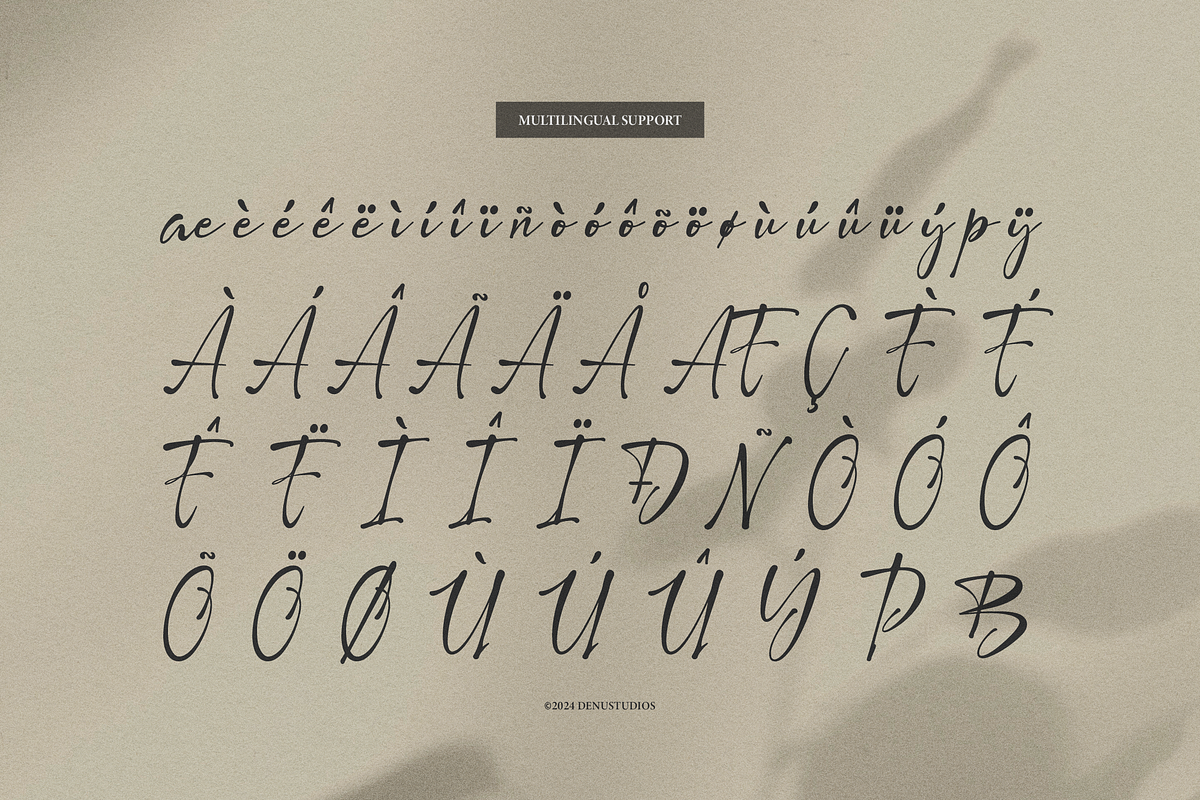 MULTILINGUAL SUPPORT
æ è é ê ë ì í î ï ñ ò ó ô õ ö ø ù ú û ü ý þ ÿ
À Á Â Ã Ä Å Æ Ç È É
Ê Ë Ì Î Ï Ð Ñ Ò Ó Ô
Õ Ö Ø Ù Ú Û Ý Þ ß
©2024 DENUSTUDIOS